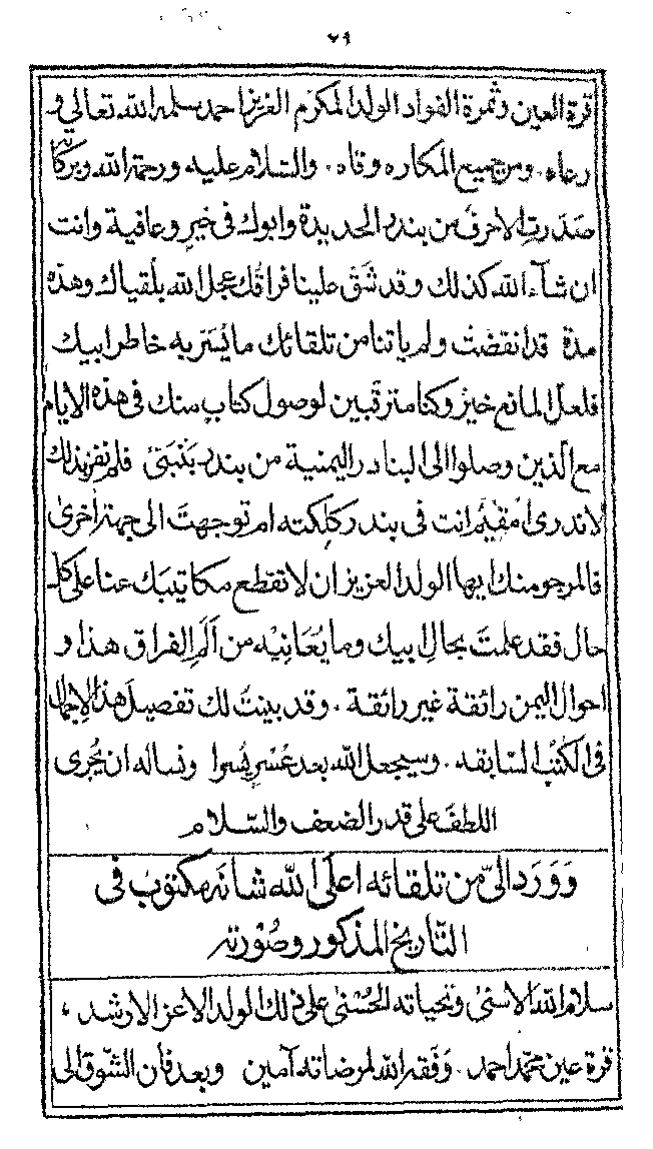 ٢٩
قرة العين وثمرة الفواد الولد المكرم العزيز احمد سلمه الله تعالي و
رعاه. ومن جميع المكاره وقاه. والسّلام عليه ورحمة الله وبركاته
صَدَرتِ الاحرفُ من بندر الحديدة وابوك في خيرٍ وعافية وانت
ان شآء الله كذلك وقد شَقَّ علينا فراقُك عجل الله بلقياك وهذه
مدة قد انقضتْ ولم ياتنا من تلقائك ما يُسَرّ به خاطر ابيك
فلعلّ المانع خيرٌ وكنا مترقبين لوصول كتابٍ منك في هذه الايام
مع الذين وصلوا الى البنادر اليمنية من بندر بَنْبَئ فلم نفز بذلك
لا ندرى أمقيمٌ انت فى بندر كلكته ام توجهتَ الى جهة اخرىٰ
فالمرجو منك ايها الولد العزيز ان لا تقطع مكاتيبك عنا على كل
حال فقد علمتَ بحال ابيك وما يُعَانِيْه من اَلَمِ الفراق هذا و
احوال اليمن رائقة غير رائقة. وقد بينتُ لك تفصيلَ هذا الاِجمال
فى الكُتُب السّابقه. وسيجعل الله بعد عُسْرٍ يُسرا ونساله ان يُجرى
اللطفَ على قدر الضعف والسّلام
وَوَرَد الىَّ من تلقائه اعلَى اللّٰه شانَه مكتوبٌ فى
التّاريخ المذكور وصُوْرته
سلام الله الاسنىٰ وتحياته الحُسْنىٰ على ذلك الولد الاعز الارشد ،
قرة عين محمّد احمد. وَفَّقه الله لمرضاته آمين وبعد فان الشّوق الى